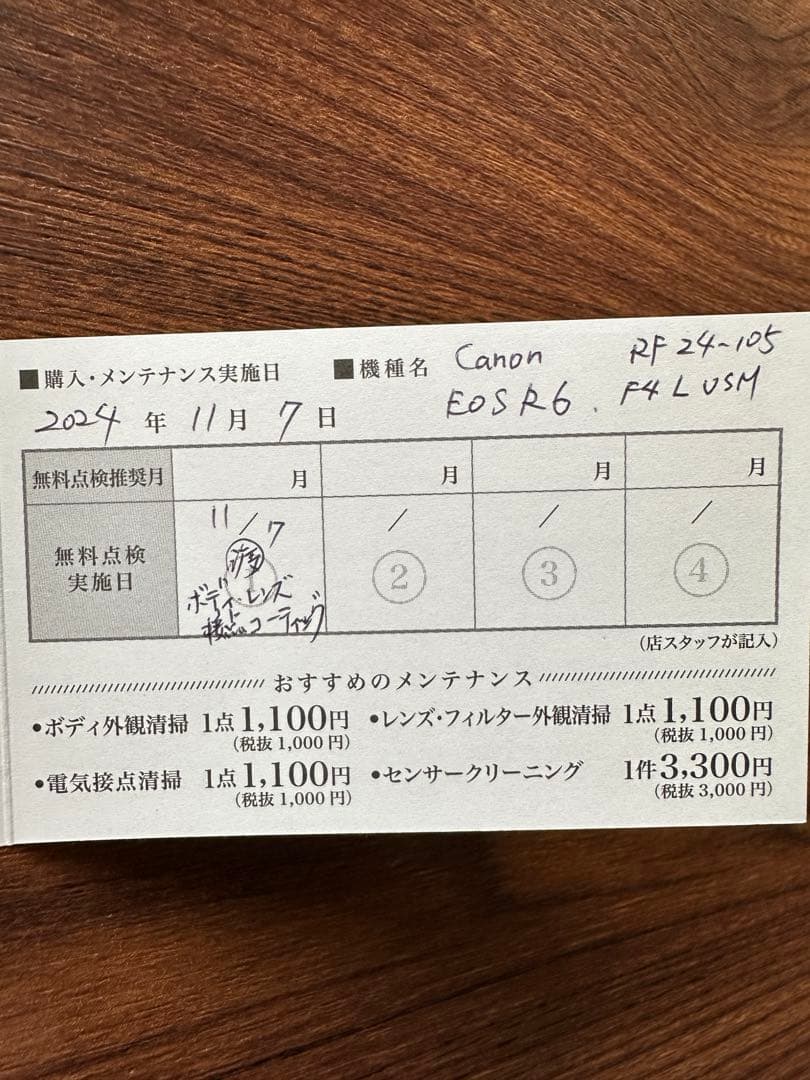 ■購入・メンテナンス実施日
2024年11月7日
■機種名 Canon RF 24-105
EOS R6. F4 L USM
無料点検推奨月 月 月 月 月
無料点検実施日
11/7 / / /
済
① ② ③ ④
ボディ・レンズ
接点コーティング
(店スタッフが記入)
おすすめのメンテナンス
•ボディ外観清掃 1点1,100円 •レンズ・フィルター外観清掃 1点1,100円
(税抜1,000円) (税抜1,000円)
•電気接点清掃 1点1,100円 •センサークリーニング 1件3,300円
(税抜1,000円) (税抜3,000円)